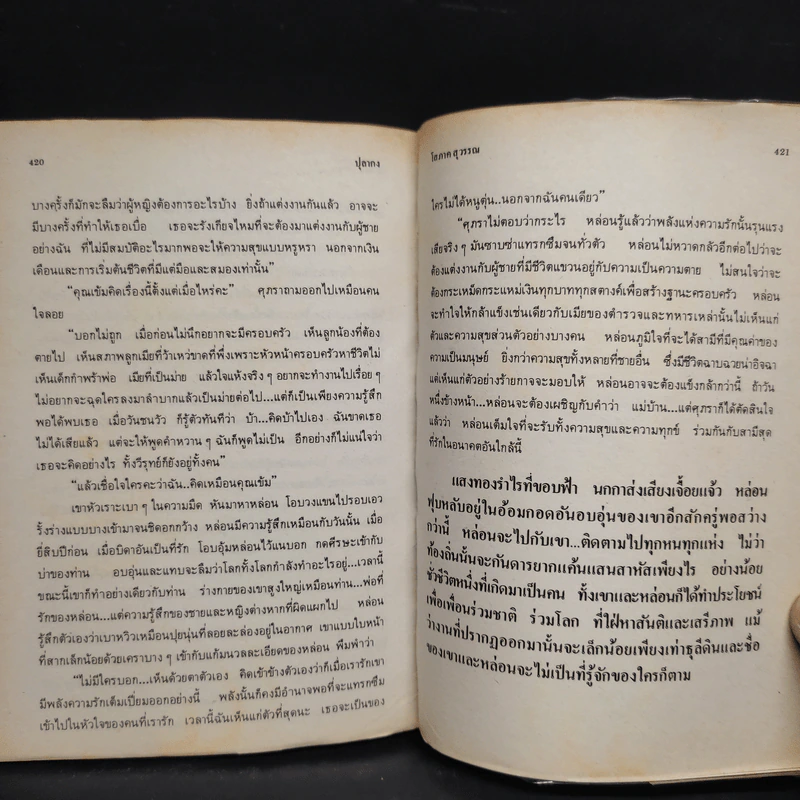 420
ปุลากง
บางครั้งก็มักจะลืมว่าผู้หญิงต้องการอะไรบ้าง ยิ่งถ้าแต่งงานกันแล้ว อาจจะ
มีบางครั้งที่ทำให้เธอเบื่อ เธอจะรังเกียจไหมที่จะต้องมาแต่งงานกับผู้ชาย
อย่างฉัน ที่ไม่มีสมบัติอะไรมากพอจะให้ความสุขแบบหรูหรา นอกจากเงิน
เดือนและการเริ่มต้นชีวิตที่มีแต่มือและสมองเท่านั้น”
“คุณเข้มคิดเรื่องนี้ตั้งแต่เมื่อไหร่คะ” ศุภราถามออกไปเหมือนคน
ใจลอย
“บอกไม่ถูก เมื่อก่อนไม่นึกอยากจะมีครอบครัว เห็นลูกน้องที่ต้อง
ตายไป เห็นสภาพลูกเมียที่ว้าเหว่ขาดที่พึ่งเพราะหัวหน้าครอบครัวหาชีวิตไม่
เห็นเด็กกำพร้าพ่อ เมียที่เป็นม่าย แล้วใจแห้งจริง ๆ อยากจะทำงานไปเรื่อย ๆ
ไม่อยากจะฉุดใครลงมาลำบากแล้วเป็นม่ายต่อไป...แต่ก็เป็นเพียงความรู้สึก
พอได้พบเธอ เมื่อวันชนวัว ก็รู้ตัวทันทีว่า บ้า...คิดบ้าไปเอง ฉันขาดเธอ
ไม่ได้เสียแล้ว แต่จะให้พูดคำหวาน ๆ ฉันก็พูดไม่เป็น อีกอย่างก็ไม่แน่ใจว่า
เธอจะคิดอย่างไร ทั้งวีรุทย์ก็ยังอยู่ทั้งคน”
“แล้วเชื่อใจใครคะว่าฉัน..คิดเหมือนคุณเข้ม”
เขาหัวเราะเบา ๆ ในความมืด หันมาหาหล่อน โอบวงแขนไปรอบเอว
รั้งร่างแบบบางเข้ามาจนชิดอกกว้าง หล่อนมีความรู้สึกเหมือนกับวันนั้น เมื่อ
ยี่สิบปีก่อน เมื่อบิดาอันเป็นที่รัก โอบอุ้มหล่อนไว้แนบอก กดศีรษะเข้ากับ
บ่าของท่าน อบอุ่นและแทบจะลืมว่าโลกทั้งโลกกำลังทำอะไรอยู่...เวลานี้
ขณะนี้เขาก็ทำอย่างเดียวกับท่าน ร่างกายของเขาสูงใหญ่เหมือนท่าน...พ่อที่
รักของหล่อน...แต่ความรู้สึกของชายและหญิงต่างหากที่ผิดแผกไป หล่อน
รู้สึกตัวเองว่าเบาหวิวเหมือนปุยนุ่นที่ลอยละล่องอยู่ในอากาศ เขาแนบใบหน้า
ที่สากเล็กน้อยด้วยเคราบาง ๆ เข้ากับแก้มนวลละเอียดของหล่อน พึมพำว่า
“ไม่มีใครบอก...เห็นด้วยตาตัวเอง คิดเข้าข้างตัวเองว่าก็เมื่อเรารักเขา
มีพลังความรักเต็มเปี่ยมออกอย่างนี้ พลังนั้นก็คงมีอำนาจพอที่จะแทรกซึม
เข้าไปในหัวใจของคนที่เรารัก เวลานี้ฉันเห็นแก่ตัวที่สุดนะ เธอจะเป็นของ
โสภาค สุวรรณ
421
ใครไม่ได้หนูตุ่น..นอกจากฉันคนเดียว”
“ศุภราไม่ตอบว่ากระไร หล่อนรู้แล้วว่าพลังแห่งความรักนั้นรุนแรง
เสียจริง ๆ มันซาบซ่าแทรกซึมจนทั่วตัว หล่อนไม่หวาดกลัวอีกต่อไปว่าจะ
ต้องแต่งงานกับผู้ชายที่มีชีวิตแขวนอยู่กับความเป็นความตาย ไม่สนใจว่าจะ
ต้องกระเหม็ดกระแหม่เงินทุกบาททุกสตางค์เพื่อสร้างฐานะครอบครัว หล่อน
จะทำใจให้กล้าแข็งเช่นเดียวกับเมียของตำรวจและทหารเหล่านั้นไม่เห็นแก่
ตัวและความสุขส่วนตัวอย่างบางคน หล่อนภูมิใจที่จะได้สามีที่มีคุณค่าของ
ความเป็นมนุษย์ ยิ่งกว่าความสุขทั้งหลายที่ชายอื่น ซึ่งมีชีวิตฉาบฉวยน่าอิจฉา
แต่เห็นแก่ตัวอย่างร้ายกาจจะมอบให้ หล่อนอาจจะต้องแข็งกล้ากว่านี้ ถ้าวัน
หนึ่งข้างหน้า...หล่อนจะต้องเผชิญกับคำว่า แม่บ้าน...แต่ศุภราก็ได้ตัดสินใจ
แล้วว่า หล่อนเต็มใจที่จะรับทั้งความสุขและความทุกข์ ร่วมกันกับสามีสุด
ที่รักในอนาคตอันใกล้นี้
แสงทองรำไรที่ขอบฟ้า นกกาส่งเสียงเจื้อยแจ้ว หล่อน
ฟุบหลับอยู่ในอ้อมกอดอันอบอุ่นของเขาอีกสักครู่พอสว่าง
กว่านี้ หล่อนจะไปกับเขา...ติดตามไปทุกหนทุกแห่ง ไม่ว่า
ท้องถิ่นนั้นจะกันดารยากแค้นแสนสาหัสเพียงไร อย่างน้อย
ชั่วชีวิตหนึ่งที่เกิดมาเป็นคน ทั้งเขาและหล่อนก็ได้ทำประโยชน์
เพื่อเพื่อนร่วมชาติ ร่วมโลก ที่ใฝ่หาสันติและเสรีภาพ แม้
ว่างานที่ปรากฏออกมานั้นจะเล็กน้อยเพียงเท่าธุลีดินและชื่อ
ของเขาและหล่อนจะไม่เป็นที่รู้จักของใครก็ตาม